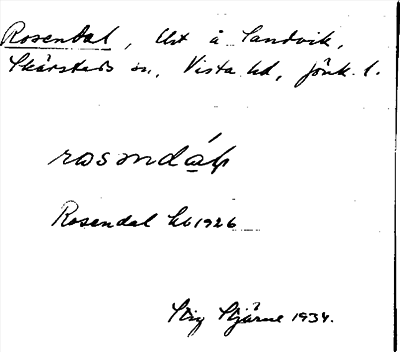 Rosendal, Ust å Sandvik,
Skärstads sn, Vista hd, Jönk. l.
rosəndáḷ
Rosendal hb 1926
Stig Stjärne 1934.